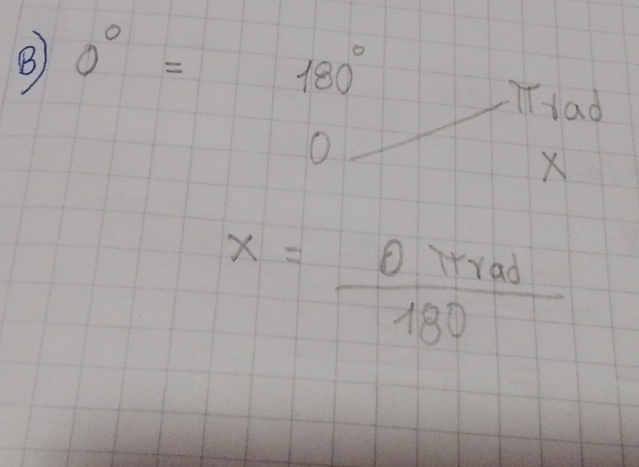 B) 0° = 180° π rad
0 x
x = 0 π rad
180